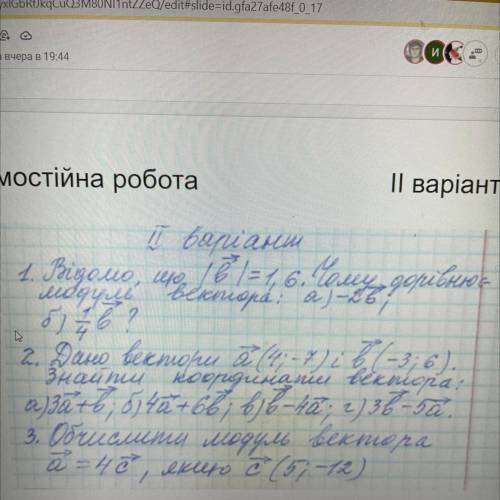 edit#slide=id.gfa27afe48f_0_17
вчера в 19:44
И
мостійна робота
ІІ варіант
ІІ варіант
1. Відомо, що |b⃗|=1,6. Чому дорівнює
модуль вектора: а) -2b⃗;
б) 1/4 b⃗ ?
2. Дано вектори a⃗(4;-7) і b⃗(-3;6).
Знайти координати вектора:
а) 3a⃗+b⃗; б) 4a⃗+6b⃗; в) b⃗-4a⃗; г) 3b⃗-5a⃗.
3. Обчислити модуль вектора
a⃗ = 4c⃗, якщо c⃗ (5;-12)